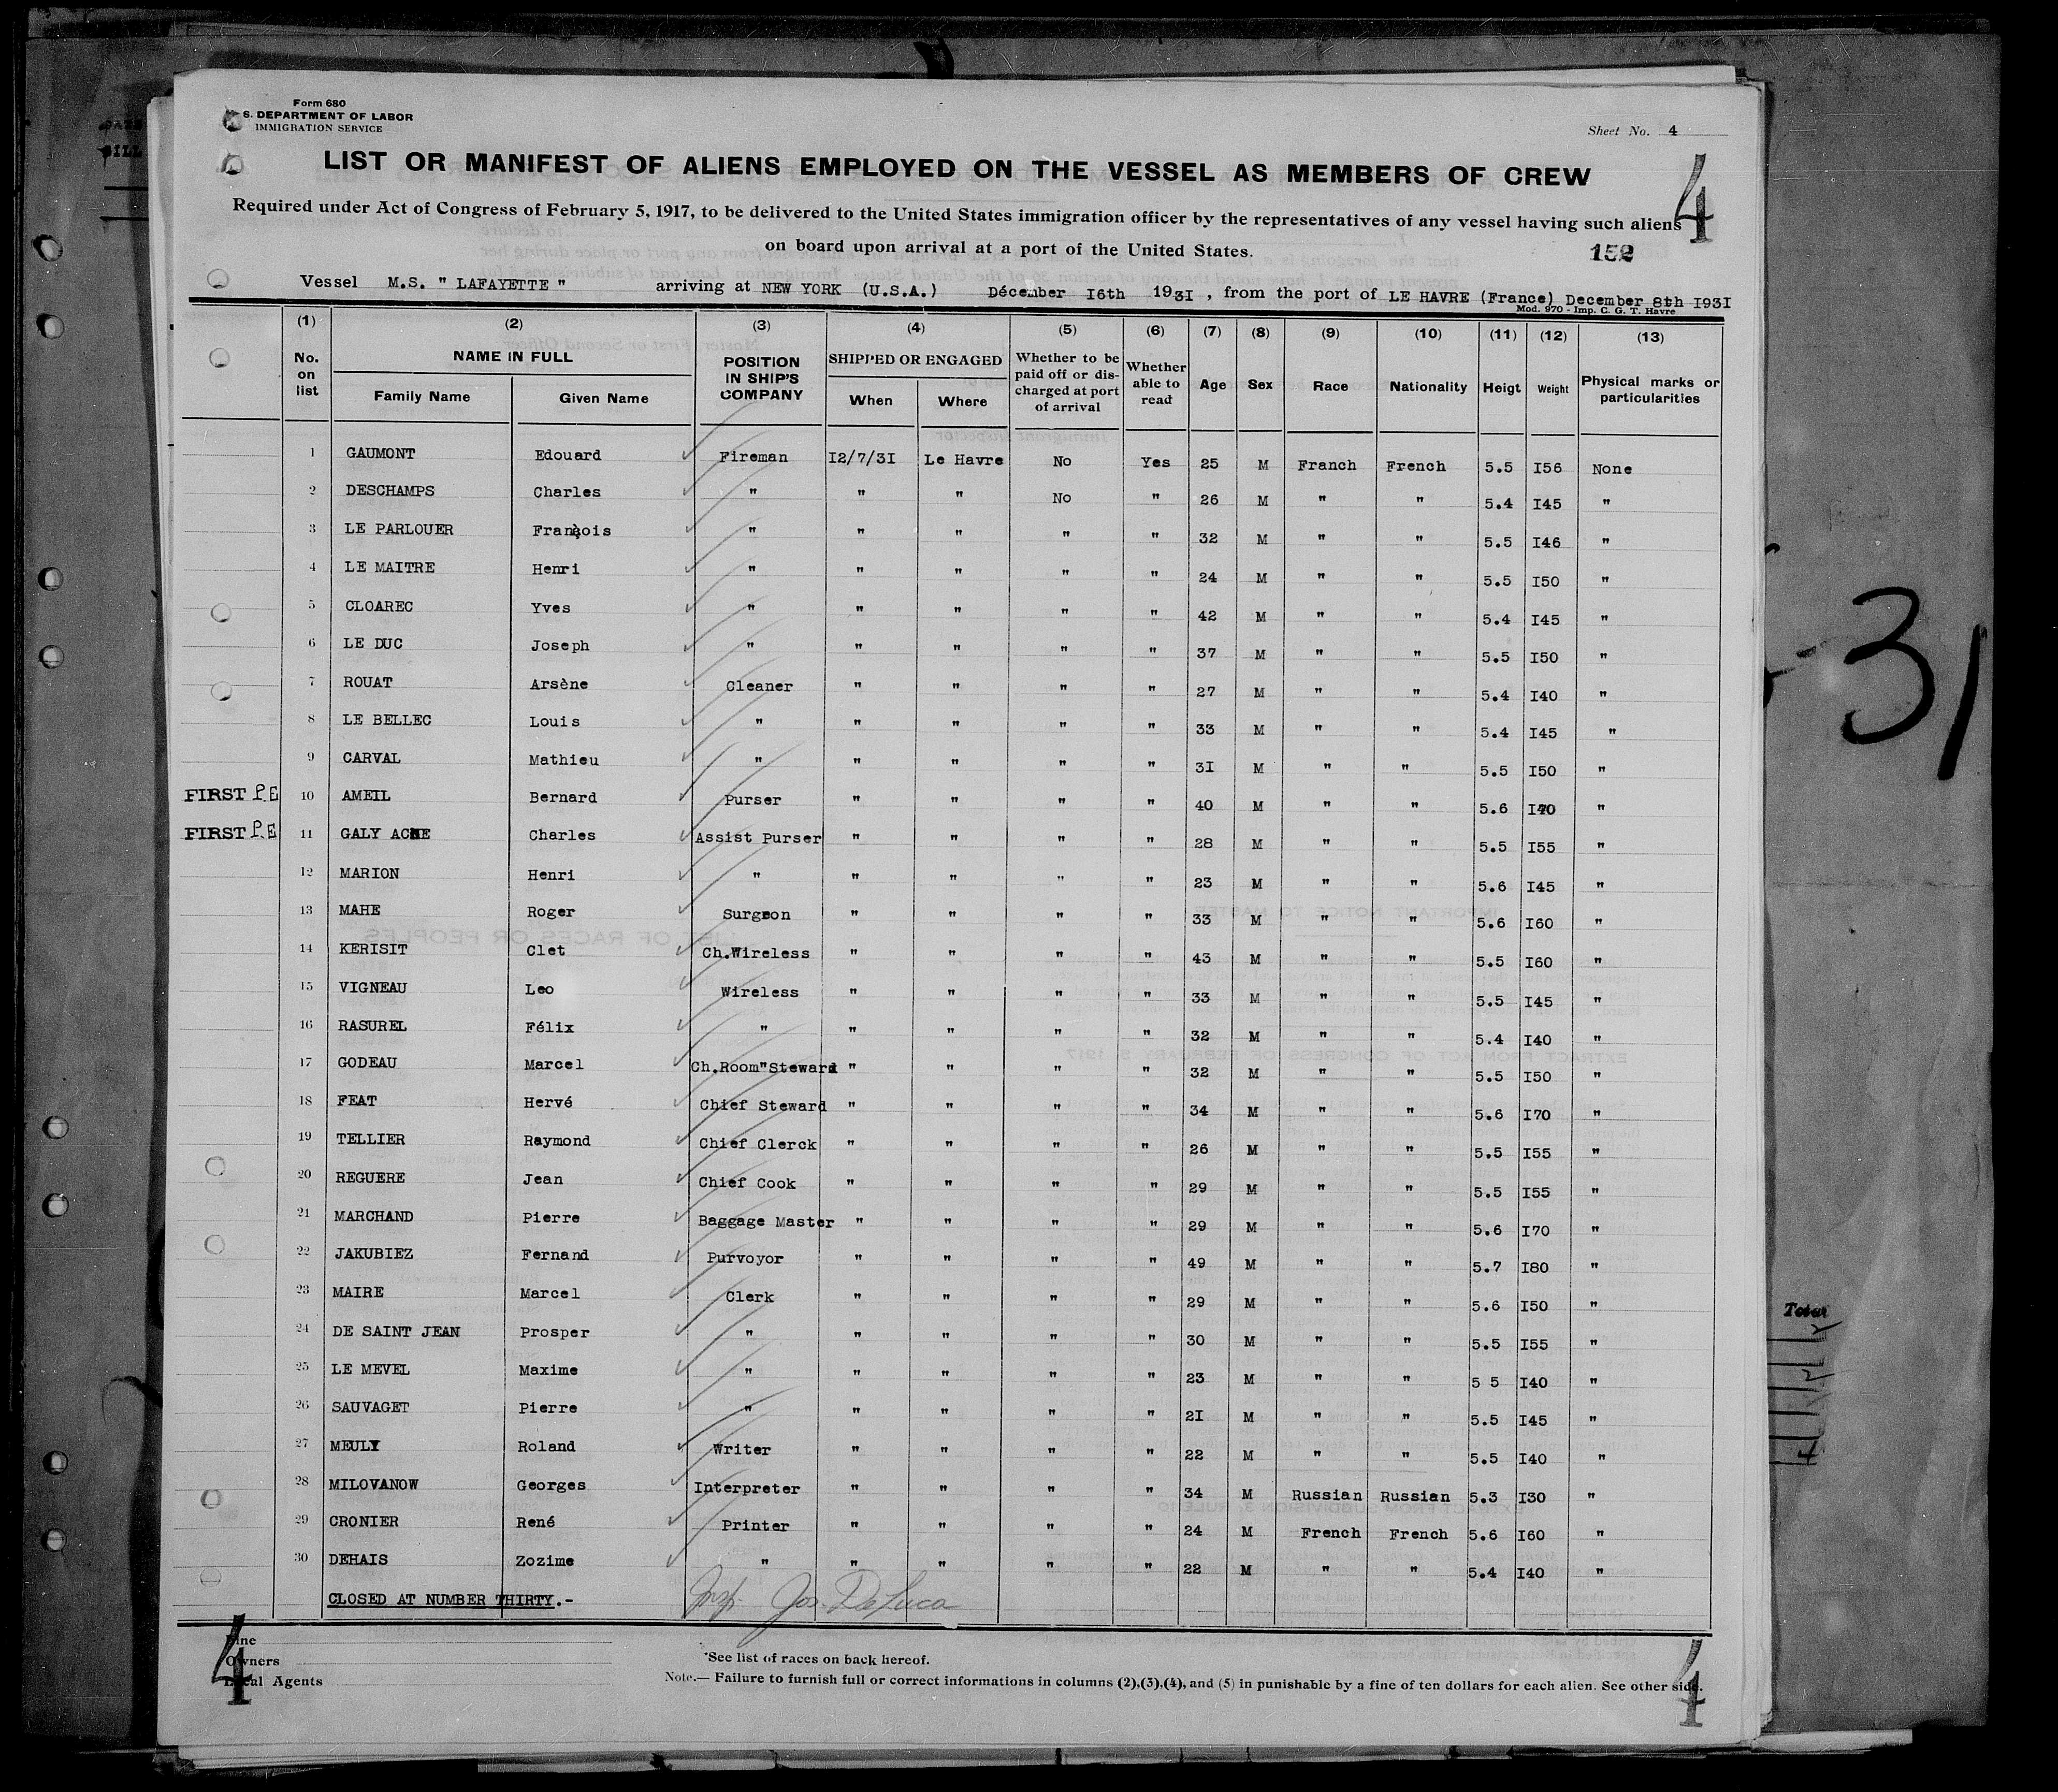 Form 680
S. DEPARTMENT OF LABOR
IMMIGRATION SERVICE
Sheet No. 4
LIST OR MANIFEST OF ALIENS EMPLOYED ON THE VESSEL AS MEMBERS OF CREW
4
Required under Act of Congress of February 5, 1917, to be delivered to the United States immigration officer by the representatives of any vessel having such aliens
on board upon arrival at a port of the United States.
152
Vessel M.S. " LAFAYETTE " arriving at NEW YORK (U.S.A.) Décember I6th 193I , from the port of LE HAVRE (France) December 8th I93I
Mod. 970 - Imp. C. G. T. Havre
(1) (2) (3) (4) (5) (6) (7) (8) (9) (10) (11) (12) (13)
No. on list NAME IN FULL Family Name Given Name POSITION IN SHIP'S COMPANY SHIPPED OR ENGAGED When Where Whether to be paid off or discharged at port of arrival Whether able to read Age Sex Race Nationality Heigt Weight Physical marks or particularities
1 GAUMONT Edouard Fireman I2/7/3I Le Havre No Yes 25 M Franch French 5.5 I56 None
2 DESCHAMPS Charles " " " No " 26 M " " 5.4 I45 "
3 LE PARLOUER François " " " " " 32 M " " 5.5 I46 "
4 LE MAITRE Henri " " " " " 24 M " " 5.5 I50 "
5 CLOAREC Yves " " " " " 42 M " " 5.4 I45 "
6 LE DUC Joseph " " " " " 37 M " " 5.5 I50 "
7 ROUAT Arsène Cleaner " " " " 27 M " " 5.4 I40 "
8 LE BELLEC Louis " " " " " 33 M " " 5.4 I45 "
9 CARVAL Mathieu " " " " " 3I M " " 5.5 I50 "
FIRST P.E 10 AMEIL Bernard Purser " " " " 40 M " " 5.6 I70 "
FIRST P.E 11 GALY ACHE Charles Assist Purser " " " " 28 M " " 5.5 I55 "
12 MARION Henri " " " " " 23 M " " 5.6 I45 "
13 MAHE Roger Surgeon " " " " 33 M " " 5.6 I60 "
14 KERISIT Clet Ch.Wireless " " " " 43 M " " 5.5 I60 "
15 VIGNEAU Leo Wireless " " " " 33 M " " 5.5 I45 "
16 RASUREL Félix " " " " " 32 M " " 5.4 I40 "
17 GODEAU Marcel Ch.Room"Steward " " " " 32 M " " 5.5 I50 "
18 FEAT Hervé Chief Steward " " " " 34 M " " 5.6 I70 "
19 TELLIER Raymond Chief Clerck " " " " 26 M " " 5.5 I55 "
20 REGUERE Jean Chief Cook " " " " 29 M " " 5.5 I55 "
21 MARCHAND Pierre Baggage Master " " " " 29 M " " 5.6 I70 "
22 JAKUBIEZ Fernand Purvoyor " " " " 49 M " " 5.7 I80 "
23 MAIRE Marcel Clerk " " " " 29 M " " 5.6 I50 "
24 DE SAINT JEAN Prosper " " " " " 30 M " " 5.5 I55 "
25 LE MEVEL Maxime " " " " " 23 M " " 5 5 I40 "
26 SAUVAGET Pierre " " " " " 2I M " " 5.5 I45 "
27 MEULY Roland Writer " " " " 22 M " " 5.5 I40 "
28 MILOVANOW Georges Interpreter " " " " 34 M Russian Russian 5.3 I30 "
29 CRONIER René Printer " " " " 24 M French French 5.6 I60 "
30 DEHAIS Zozime " " " " " 22 M " " 5.4 I40 "
CLOSED AT NUMBER THIRTY.- Insp. Jos. DeLuca
Line
Owners
Local Agents
4
*See list of races on back hereof.
Note.— Failure to furnish full or correct informations in columns (2),(3),(4), and (5) in punishable by a fine of ten dollars for each alien. See other side.
4
31
Total